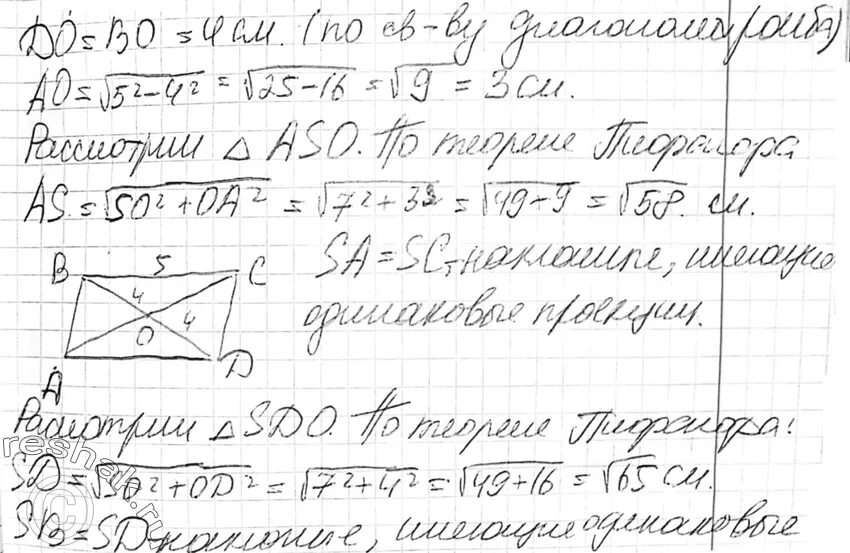 DO = BO = 4 см. (по св-ву диагоналей ромба)
AO = √5² − 4² = √25 − 16 = √9 = 3 см.
Рассмотрим △ ASO. По теореме Пифагора
AS = √SO² + OA² = √7² + 3² = √49 − 9 = √58. см.
SA = SC, наклонные, имеющие
одинаковые проекции.
B 5 C
4
O 4
A D
Расмотрим △ SDO. По теореме Пифагора:
SD = √SO² + OD² = √7² + 4² = √49 + 16 = √65 см.
SB = SD – наклонные, имеющие одинаковые
reshak.ru